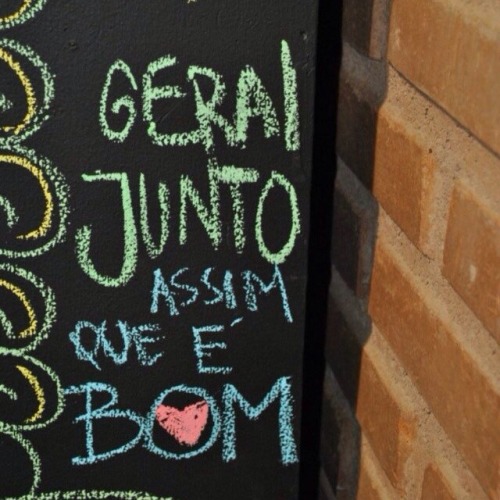 GERAL
JUNTO
ASSIM
QUE É
BOM